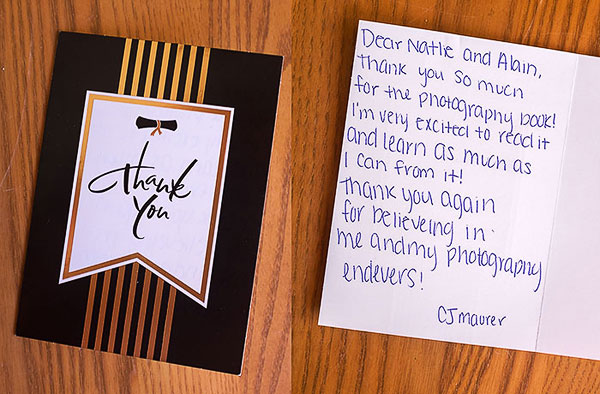 Thank
You
Dear Natlie and Alain,
thank you so much
for the photography book!
I'm very excited to read it
and learn as much as
I can from it!
thank you again
for believeing in
me and my photography
endevers!
CJ maurer